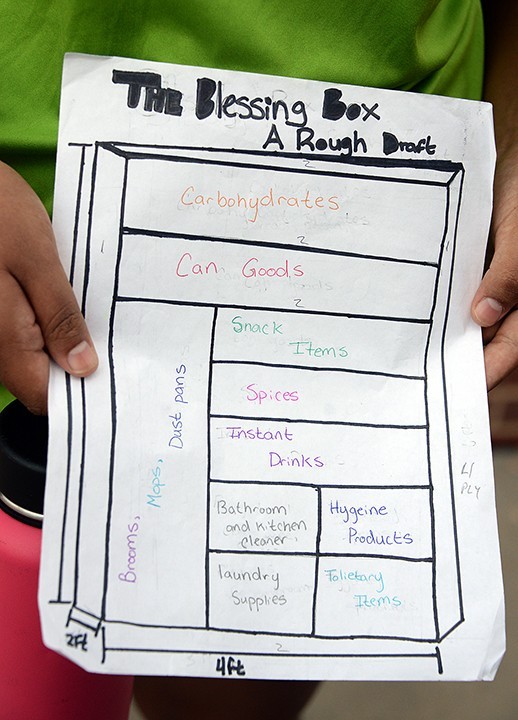 THE Blessing Box
A Rough Draft
2
Carbohydrates
2
Can Goods
2
Snack
Items
Spices
Instant
Drinks
Brooms, Mops, Dust pans
Bathroom
and kitchen
cleaner
Hygeine
Products
laundry
Supplies
Folietary
Items
1
1
PLY
2ft
2
4ft